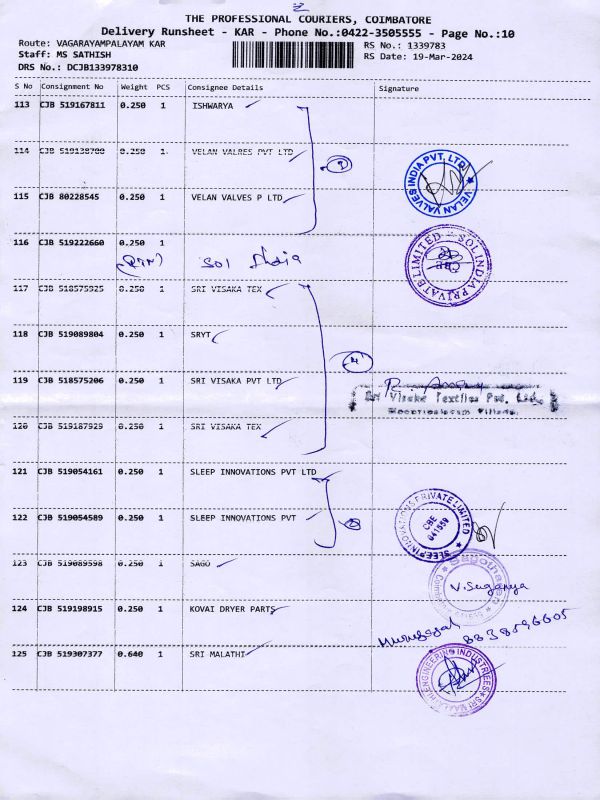 THE PROFESSIONAL COURIERS, COIMBATORE
Delivery Runsheet - KAR - Phone No.:0422-3505555 - Page No.:10
Route: VAGARAYAMPALAYAM KAR
RS No.: 1339783
Staff: MS SATHISH
RS Date: 19-Mar-2024
DRS No.: DCJB133978310
S No Consignment No Weight PCS Consignee Details Signature
113 CJB 519167811 0.250 1 ISHWARYA
114 CJB 519138780 0.250 1 VELAN VALRES PVT LTD
VELAN VALVES INDIA PVT. LTD.
115 CJB 80228545 0.250 1 VELAN VALVES P LTD
116 CJB 519222660 0.250 1
Sol India
SOL INDIA PRIVATE LIMITED
117 CJB 518575925 0.250 1 SRI VISAKA TEX
118 CJB 519089804 0.250 1 SRYT
4
119 CJB 518575206 0.250 1 SRI VISAKA PVT LTD
Sri Visaka Textiles Pvt. Ltd.
120 CJB 519187929 0.250 1 SRI VISAKA TEX
121 CJB 519054161 0.250 1 SLEEP INNOVATIONS PVT LTD
SLEEP INNOVATIONS PRIVATE LIMITED
CBE
641559
122 CJB 519054589 0.250 1 SLEEP INNOVATIONS PVT
123 CJB 519089598 0.250 1 SAGO
V. Suganya
124 CJB 519198915 0.250 1 KOVAI DRYER PARTS
Murugesan 8838596605
125 CJB 519307377 0.640 1 SRI MALATHI
SRI MALATHI ENGINEERING INDUSTRIES